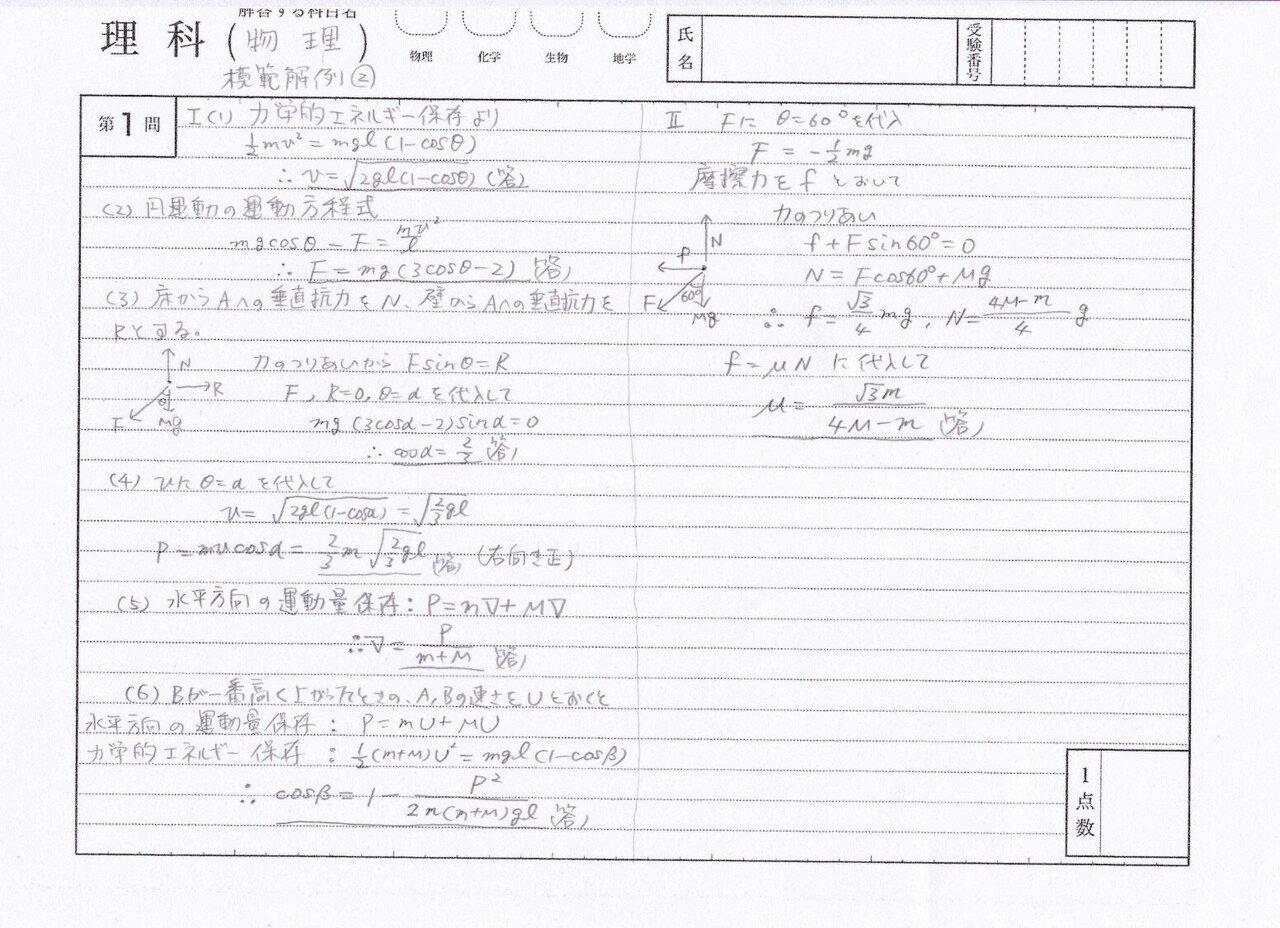 解答する科目名
理科(物理)
物理 化学 生物 地学
氏名
受験番号
模範解例②
第1問
I(1) 力学的エネルギー保存より
½mv² = mgl(1-cosθ)
∴ v = √2gl(1-cosθ) (答)
(2) 円運動の運動方程式
mgcosθ - F = mv²/l
∴ F = mg(3cosθ-2) (答)
(3) 床からAへの垂直抗力をN、壁からAへの垂直抗力を
Rとする。
N
R
F
θ
Mg
力のつりあいから Fsinθ=R
F, R=0, θ=αを代入して
mg(3cosα-2)sinα=0
∴ cosα = 2/3 (答)
(4) vにθ=αを代入して
v = √2gl(1-cosα) = √2/3gl
P = mvcosα = 2/3m√2/3gl (答) (右向き正)
(5) 水平方向の運動量保存: P=mV+MV
∴V = P/m+M (答)
(6) Bが一番高く上がったときの、A,Bの速さをUとおくと
水平方向の運動量保存: P=mU+MU
力学的エネルギー保存: ½(m+M)U² = mgl(1-cosβ)
∴ cosβ = 1 - P²/2m(m+M)gl (答)
II Fにθ=60°を代入
F = -½mg
摩擦力をfとおいて
N
f
F
60°
Mg
力のつりあい
f+Fsin60°=0
N = Fcos60°+Mg
∴ f = √3/4 mg, N = 4M-m/4 g
f=μN に代入して
μ = √3m/4M-m (答)
1点数